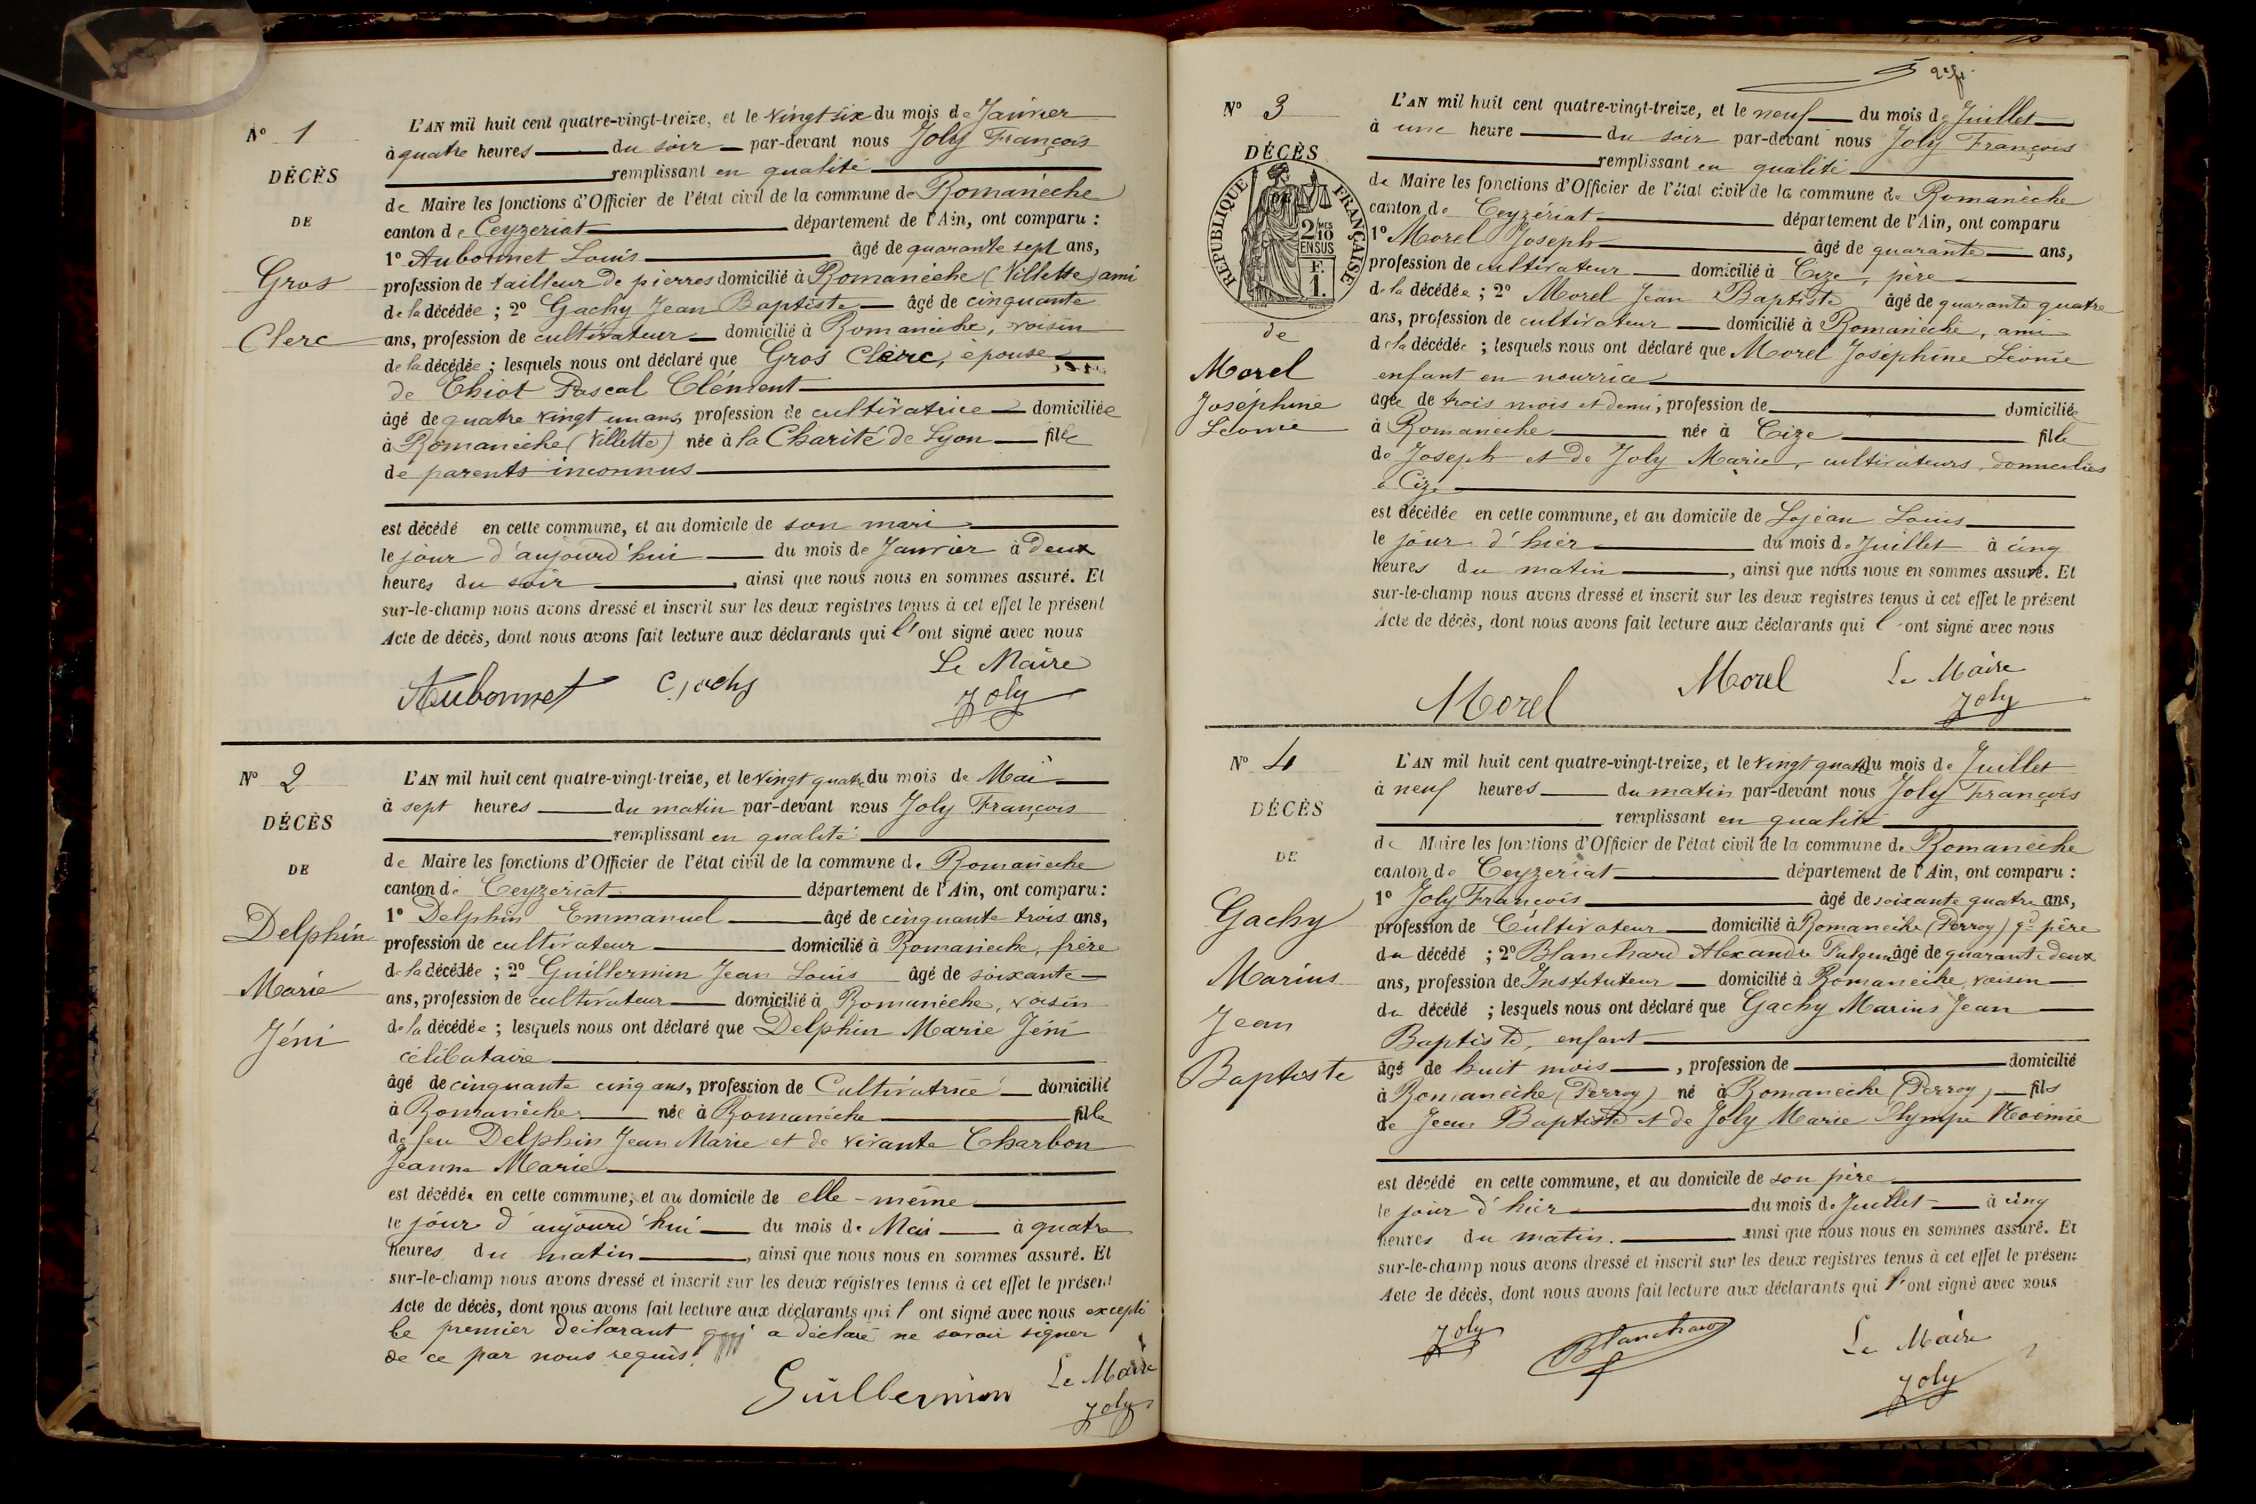 N° 1
DÉCÈS
DE
Gros
Clerc
L'AN mil huit cent quatre-vingt-treize, et le vingt six du mois de Janvier
à quatre heures du soir par-devant nous Joly François
remplissant en qualité
de Maire les fonctions d'Officier de l'état civil de la commune de Romanèche
canton de Ceyzeriat département de l'Ain, ont comparu :
1° Aubonnet Louis âgé de quarante sept ans,
profession de tailleur de pierres domicilié à Romanèche (Villette) ami
de la décédée ; 2° Gachy Jean Baptiste âgé de cinquante
ans, profession de cultivateur domicilié à Romanèche, voisin
de la décédée ; lesquels nous ont déclaré que Gros Clerc, épouse
de Chiot Pascal Clément
âgé de quatre vingt un ans, profession de cultivatrice domiciliée
à Romanèche (Villette) née à la Charité de Lyon fille
de parents inconnus
est décédé en cette commune, et au domicile de son mari
le jour d'aujourd'hui du mois de Janvier à deux
heures du soir, ainsi que nous nous en sommes assuré. Et
sur-le-champ nous avons dressé et inscrit sur les deux registres tenus à cet effet le présent
Acte de décès, dont nous avons fait lecture aux déclarants qui l'ont signé avec nous
Aubonnet Gachy Le Maire
Joly
N° 2
DÉCÈS
DE
Delphin
Marie
Jéni
L'AN mil huit cent quatre-vingt-treize, et le vingt quatre du mois de Mai
à sept heures du matin par-devant nous Joly François
remplissant en qualité
de Maire les fonctions d'Officier de l'état civil de la commune de Romanèche
canton de Ceyzeriat département de l'Ain, ont comparu :
1° Delphin Emmanuel âgé de cinquante trois ans,
profession de cultivateur domicilié à Romanèche, frère
de la décédée ; 2° Guillermin Jean Louis âgé de soixante
ans, profession de cultivateur domicilié à Romanèche, voisin
de la décédée ; lesquels nous ont déclaré que Delphin Marie Jéni
célibataire
âgé de cinquante cinq ans, profession de Cultivatrice domicilié
à Romanèche née à Romanèche fille
de feu Delphin Jean Marie et de vivante Charbon
Jeanne Marie
est décédée en cette commune, et au domicile de elle-même
le jour d'aujourd'hui du mois de Mai à quatre
heures du matin, ainsi que nous nous en sommes assuré. Et
sur-le-champ nous avons dressé et inscrit sur les deux registres tenus à cet effet le présent
Acte de décès, dont nous avons fait lecture aux déclarants qui l'ont signé avec nous excepté
le premier déclarant qui a déclaré ne savoir signer
de ce par nous requis.
Guillermin Le Maire
Joly
5
N° 3
DÉCÈS
RÉPUBLIQUE FRANÇAISE
2/10 MES
EN SUS
F.
1.
de
Morel
Joséphine
Léonie
L'AN mil huit cent quatre-vingt-treize, et le neuf du mois de Juillet
à une heure du soir par-devant nous Joly François
remplissant en qualité
de Maire les fonctions d'Officier de l'état civil de la commune de Romanèche
canton de Ceyzériat département de l'Ain, ont comparu
1° Morel Joseph âgé de quarante ans,
profession de cultivateur domicilié à Cize, père
de la décédée ; 2° Morel Jean Baptiste âgé de quarante quatre
ans, profession de cultivateur domicilié à Romanèche, ami
de la décédée ; lesquels nous ont déclaré que Morel Joséphine Léonie
enfant en nourrice
agée de trois mois et demi, profession de domiciliée
à Romanèche née à Cize fille
de Joseph et de Joly Marie, cultivateurs, domiciliés
à Cize
est décédée en cette commune, et au domicile de Lojean Louis
le jour d'hier du mois de Juillet à cinq
heures du matin, ainsi que nous nous en sommes assuré. Et
sur-le-champ nous avons dressé et inscrit sur les deux registres tenus à cet effet le présent
Acte de décès, dont nous avons fait lecture aux déclarants qui l'ont signé avec nous
Morel Morel Le Maire
Joly
N° 4
DÉCÈS
DE
Gachy
Marius
Jean
Baptiste
L'AN mil huit cent quatre-vingt-treize, et le vingt quatre du mois de Juillet
à neuf heures du matin par-devant nous Joly François
remplissant en qualité
de Maire les fonctions d'Officier de l'état civil de la commune de Romanèche
canton de Ceyzeriat département de l'Ain, ont comparu :
1° Joly François âgé de soixante quatre ans,
profession de Cultivateur domicilié à Romanèche (Perroy) gd père
du décédé ; 2° Blanchard Alexandre âgé de quarante deux
ans, profession de Instituteur domicilié à Romanèche, voisin
du décédé ; lesquels nous ont déclaré que Gachy Marius Jean
Baptiste, enfant
âgé de huit mois, profession de domicilié
à Romanèche (Perroy) né à Romanèche (Perroy) fils
de Jean Baptiste et de Joly Marie Olympe Noémie
est décédé en cette commune, et au domicile de son père
le jour d'hier du mois de Juillet à cinq
heures du matin. ainsi que nous nous en sommes assuré. Et
sur-le-champ nous avons dressé et inscrit sur les deux registres tenus à cet effet le présent
Acte de décès, dont nous avons fait lecture aux déclarants qui l'ont signé avec nous
Joly Blanchard Le Maire
Joly